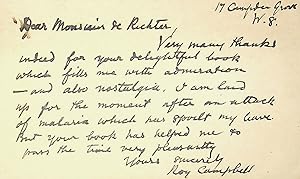 17 Campden Grove
W.8.
Dear Monsieur de Richter,
Very many thanks
indeed for your delightful book
which fills me with admiration
— and also nostalgia. I am laid
up for the moment after an attack
of malaria which has spoilt my leave.
But your book has helped me to
pass the time very pleasantly
Yours sincerely
Roy Campbell